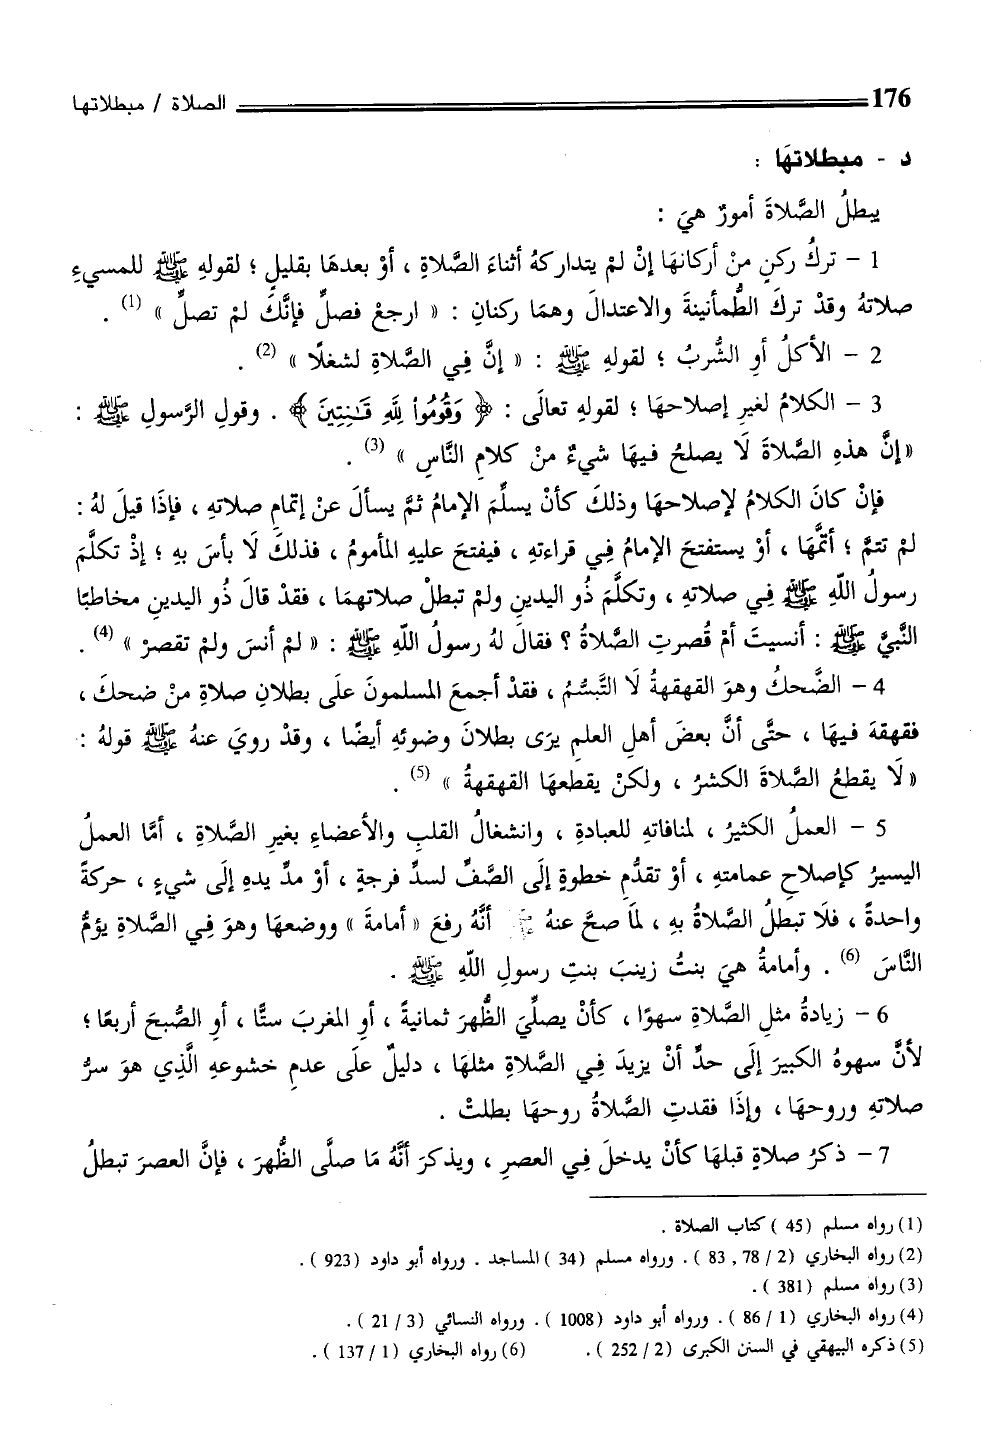 176 الصلاة / مبطلاتها
د - مبطلاتهَا :
يبطلُ الصَّلاةَ أمورٌ هيَ :
1 – تركُ ركنٍ منْ أركانهَا إنْ لمْ يتداركهُ أثناءَ الصَّلاةِ ، أوْ بعدهَا بقليلٍ ؛ لقولهِ ﷺ للمسيءِ
صلاتهُ وقدْ تركَ الطُّمأنينةَ والاعتدالَ وهمَا ركنانِ : « ارجعْ فصلِّ فإنَّكَ لمْ تصلِّ » (1) .
2 – الأكلُ أوِ الشُّربُ ؛ لقولهِ ﷺ : « إنَّ فِي الصَّلاةِ لشغلًا » (2) .
3 – الكلامُ لغيرِ إصلاحهَا ؛ لقولهِ تعالَى : ﴿ وَقُومُواْ لِلَّهِ قَـٰنِتِينَ ﴾ . وقولِ الرَّسولِ ﷺ :
« إنَّ هذهِ الصَّلاةَ لَا يصلحُ فيهَا شيءٌ منْ كلامِ النَّاسِ » (3) .
فإنْ كانَ الكلامُ لإصلاحهَا وذلكَ كأنْ يسلِّمَ الإمامُ ثمَّ يسألَ عنْ إتمامِ صلاتهِ ، فإذَا قيلَ لهُ :
لمْ تتمَّ ؛ أتمَّهَا ، أوْ يستفتحَ الإمامُ فِي قراءتهِ ، فيفتحَ عليهِ المأمومُ ، فذلكَ لَا بأسَ بهِ ؛ إذْ تكلَّمَ
رسولُ اللَّهِ ﷺ فِي صلاتهِ ، وتكلَّمَ ذُو اليدينِ ولمْ تبطلْ صلاتهمَا ، فقدْ قالَ ذُو اليدينِ مخاطبًا
النَّبيَّ ﷺ : أنسيتَ أمْ قُصرتِ الصَّلاةُ ؟ فقالَ لهُ رسولُ اللَّهِ ﷺ : « لمْ أنسَ ولمْ تقصرْ » (4) .
4 – الضَّحكُ وهوَ القهقهةُ لَا التَّبسُّمُ ، فقدْ أجمعَ المسلمونَ علَى بطلانِ صلاةِ منْ ضحكَ ،
فقهقهَ فيهَا ، حتَّى أنَّ بعضَ أهلِ العلمِ يرَى بطلانَ وضوئهِ أيضًا ، وقدْ رويَ عنهُ ﷺ قولهُ :
« لَا يقطعُ الصَّلاةَ الكشرُ ، ولكنْ يقطعهَا القهقهةُ » (5) .
5 – العملُ الكثيرُ ، لمنافاتهِ للعبادةِ ، وانشغالُ القلبِ والأعضاءِ بغيرِ الصَّلاةِ ، أمَّا العملُ
اليسيرُ كإصلاحِ عمامتهِ ، أوْ تقدُّمِ خطوةٍ إلَى الصَّفِّ لسدِّ فرجةٍ ، أوْ مدِّ يدهِ إلَى شيءٍ ، حركةً
واحدةً ، فلَا تبطلُ الصَّلاةُ بهِ ، لمَا صحَّ عنهُ أنَّهُ رفعَ « أمامةَ » ووضعهَا وهوَ فِي الصَّلاةِ يؤمُّ
النَّاسَ (6) . وأمامةُ هيَ بنتُ زينبَ بنتِ رسولِ اللَّهِ ﷺ .
6 – زيادةُ مثلِ الصَّلاةِ سهوًا ، كأنْ يصلِّيَ الظُّهرَ ثمانيةً ، أوِ المغربَ ستًّا ، أوِ الصُّبحَ أربعًا ؛
لأنَّ سهوهُ الكبيرَ إلَى حدٍّ أنْ يزيدَ فِي الصَّلاةِ مثلهَا ، دليلٌ علَى عدمِ خشوعهِ الَّذِي هوَ سرُّ
صلاتهِ وروحهَا ، وإذَا فقدتِ الصَّلاةُ روحهَا بطلتْ .
7 – ذكرُ صلاةٍ قبلهَا كأنْ يدخلَ فِي العصرِ ، ويذكرَ أنَّهُ مَا صلَّى الظُّهرَ ، فإنَّ العصرَ تبطلُ
(1) رواه مسلم ( 45 ) كتاب الصلاة .
(2) رواه البخاري ( 2 / 78 , 83 ) . ورواه مسلم ( 34 ) المساجد . ورواه أبو داود ( 923 ) .
(3) رواه مسلم ( 381 ) .
(4) رواه البخاري ( 1 / 86 ) . ورواه أبو داود ( 1008 ) . ورواه النسائي ( 3 / 21 ) .
(5) ذكره البيهقي في السنن الكبرى ( 2 / 252 ) . (6) رواه البخاري ( 1 / 137 ) .